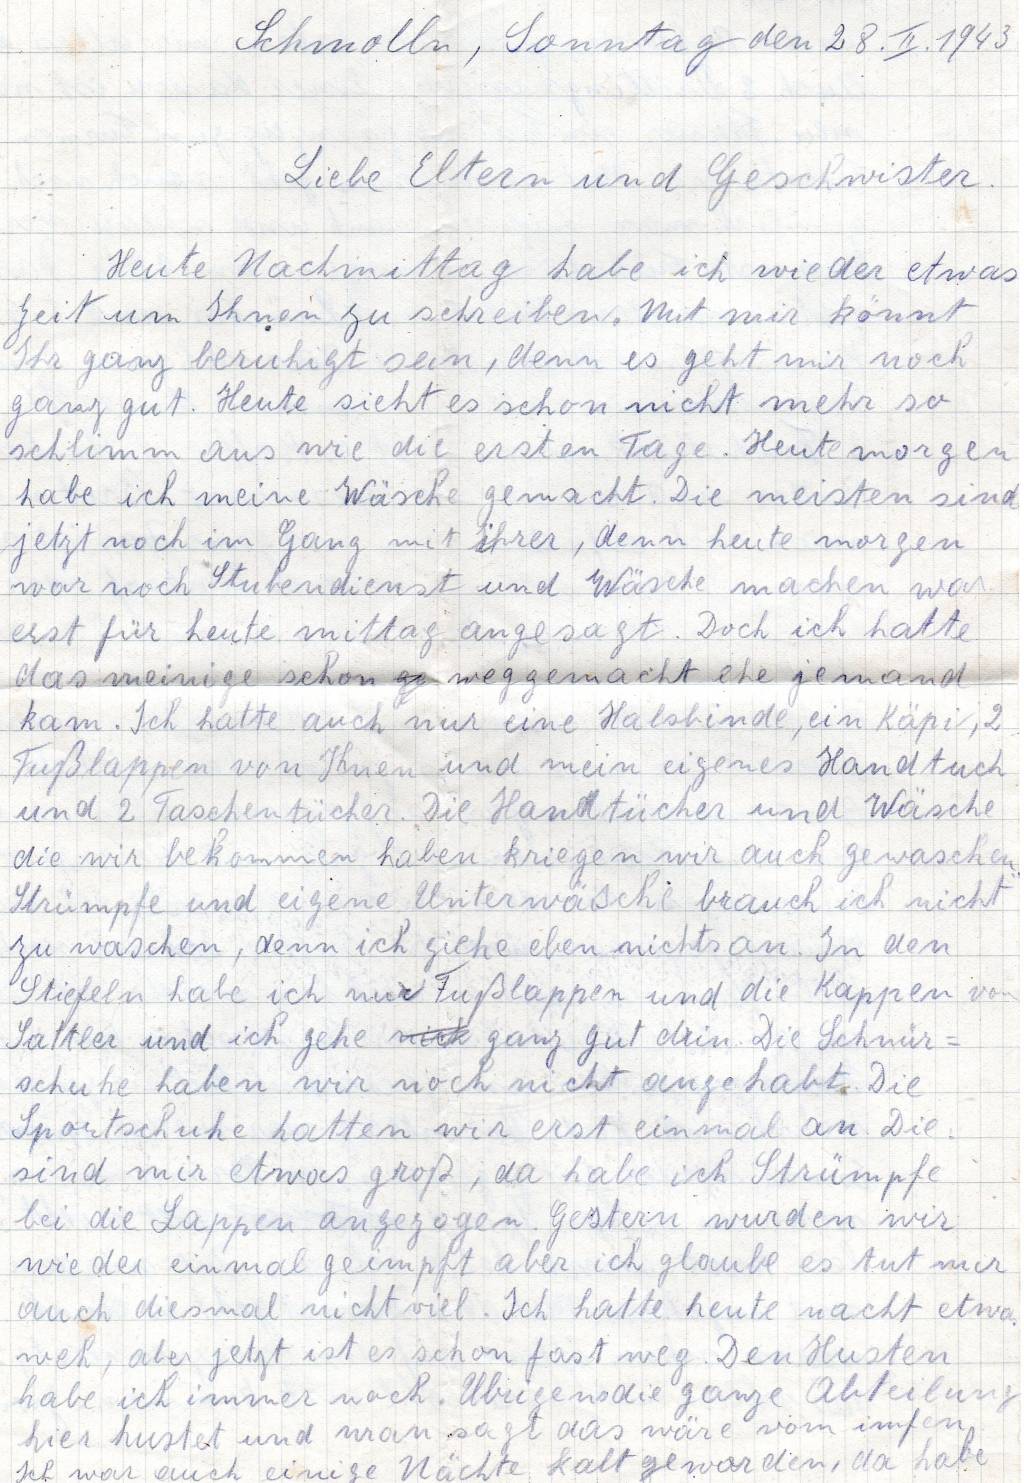 Schmolln, Sonntag den 28. II. 1943
Liebe Eltern und Geschwister.
Heute Nachmittag habe ich wieder etwas
Zeit um Ihnen zu schreiben. Mit mir könnt
Ihr ganz beruhigt sein, denn es geht mir noch
ganz gut. Heute sieht es schon nicht mehr so
schlimm aus wie die ersten Tage. Heute morgen
habe ich meine Wäsche gemacht. Die meisten sind
jetzt noch im Gang mit ihrer, denn heute morgen
war noch Stubendienst und Wäsche machen war
erst für heute mittag angesagt. Doch ich hatte
das meinige schon weggemacht ehe jemand
kam. Ich hatte auch nur eine Halsbinde, ein Käpi, 2
Fußlappen von Ihnen und mein eigenes Handtuch
und 2 Taschentücher. Die Handtücher und Wäsche
die wir bekommen haben kriegen wir auch gewaschen.
Strümpfe und eigene Unterwäsche brauch ich nicht
zu waschen, denn ich ziehe eben nichts an. In den
Stiefeln habe ich nur Fußlappen und die Kappen von
Sattler und ich gehe ganz gut drin. Die Schnür=
schuhe haben wir noch nicht angehabt. Die
Sportschuhe hatten wir erst einmal an. Die
sind mir etwas groß, da habe ich Strümpfe
bei die Lappen angezogen. Gestern wurden wir
wieder einmal geimpft aber ich glaube es tut mir
auch diesmal nicht viel. Ich hatte heute nacht etwa.
weh, aber jetzt ist es schon fast weg. Den Husten
habe ich immer noch. Übrigens die ganze Abteilung
hier hustet und man sagt das wäre vom impfen.
Ich war auch einige Nächte kalt geworden, da habe